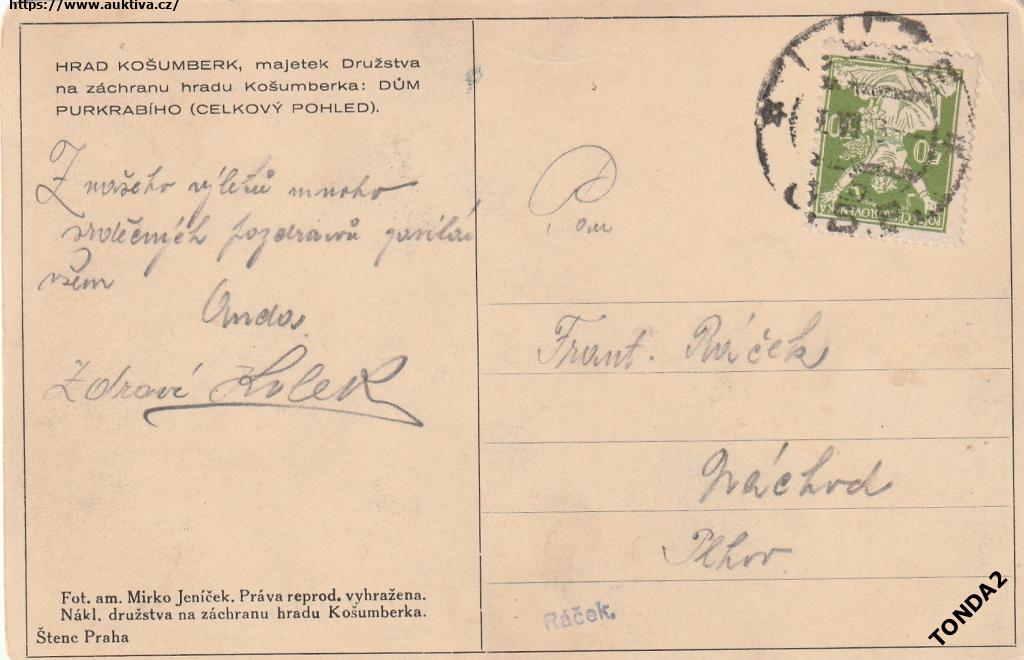 https://www.auktiva.cz/
HRAD KOŠUMBERK, majetek Družstva
na záchranu hradu Košumberka: DŮM
PURKRABÍHO (CELKOVÝ POHLED).
Z našeho výletu mnoho
srdečných pozdravů zasílá
všem
Anda
Zdraví Kolek
Pan
Frant. Ráček
Náchod
Plhov
Ráček.
Fot. am. Mirko Jeníček. Práva reprod. vyhražena.
Nákl. družstva na záchranu hradu Košumberka.
Štenc Praha
TONDA2